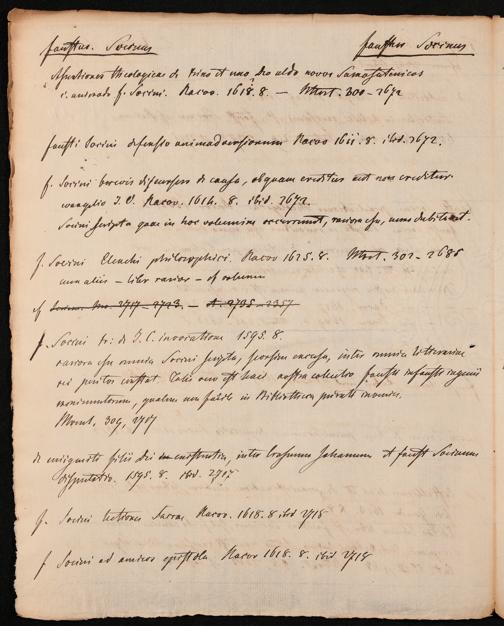 faustus. Socinus faustus Socinus
Assertiones theologicae de trino et uno Deo adv. novos Samosatenicos
f. Socini. Racov. 1618. 8. — 300-2672
fausti Socini defensio animadversionum Racov 1611. 8. ibid. 2672.
f. Socini brevis discursus de causa, ob quam creditur aut non creditur
evangelio J. C. Racov. 1614. 8. ibid. 2672.
Socini scripta quae in hoc volumine occurrunt, rariora esse, nemo dubitat.
f. Socini Elenchi philosophici. Racov 1625. 8. 302-2685
— liber rarior — volumen
cf 2717-2723. — A. 2735-2357
f. Socini tr. de J. C. invocatione 1595. 8.
rariora esse omnia Socini scripta, seorsim excusa, inter omnes litterariae
rei peritos constat. Talis vero est haec nostra collectio fausti ingenii
monimentorum, qualem non facile in Bibliotheca privata
309, 2707
de filii dei existentia, inter Erasmum Johannem et faust Socinum
disputatio. 1595. 8. ibid. 2717
f. Socini lectiones Sacrae Racov. 1618. 8 ibid 2718
f Socini ad amicos epistolae Racov 1618. 8. ibid 2718